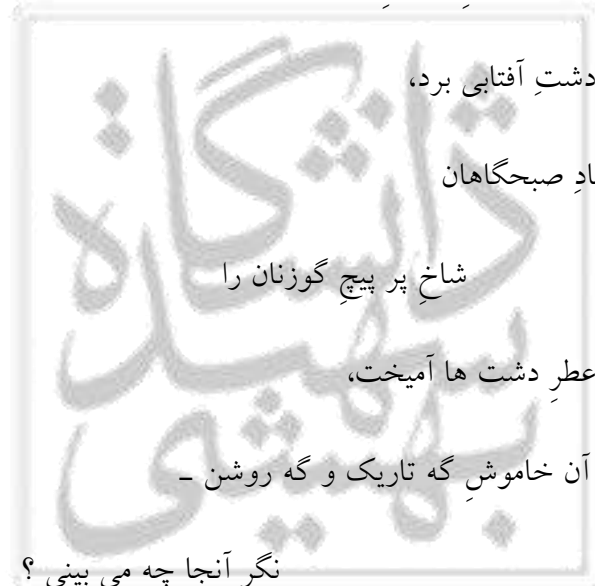 دشتِ آفتابی برد،
صبحگاهان
شاخِ پر پیچِ گوزنان را
عطرِ دشت ها آمیخت،
آن خاموشِ گه تاریک و گه روشن –
نگر آنجا چه می بینی ؟
دانشگاه
شهید
بهشتی